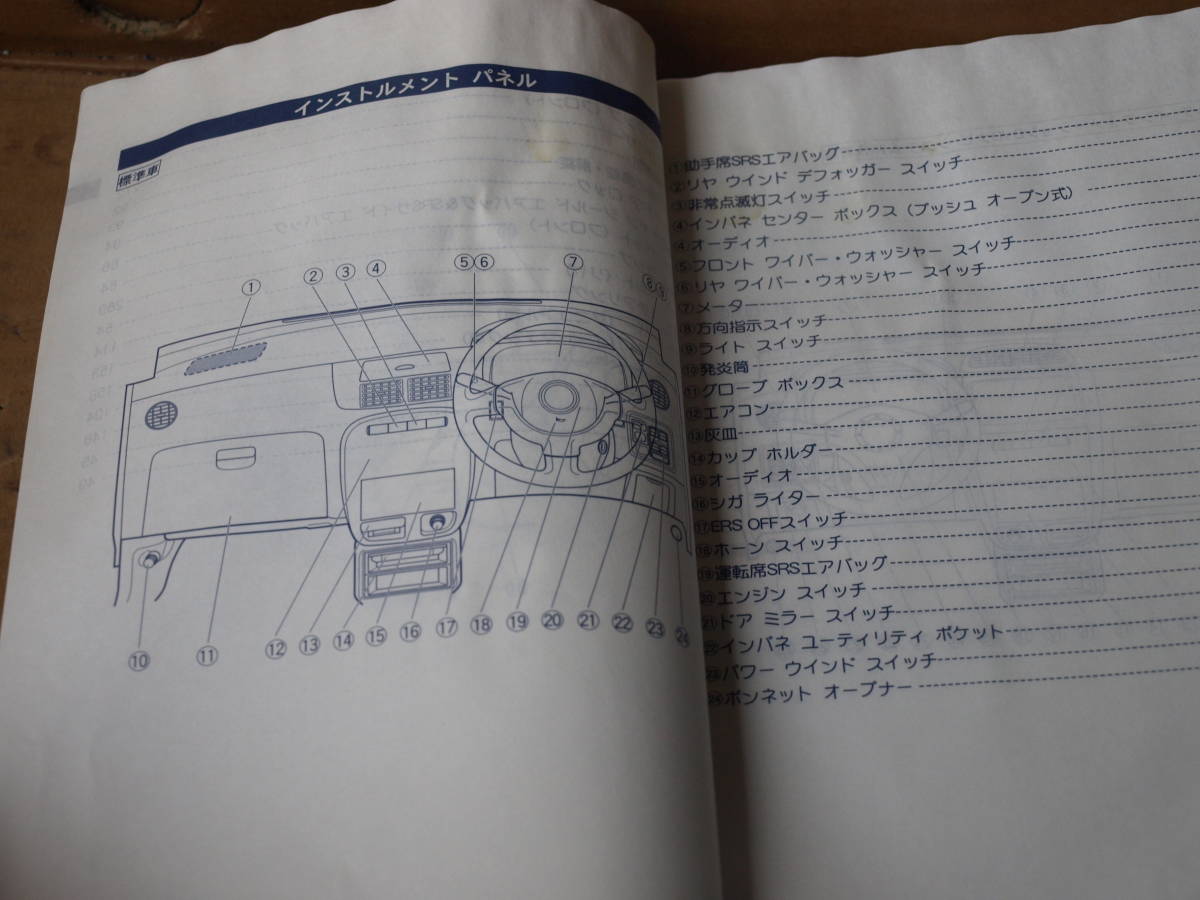 インストルメント パネル
標準車
① ② ③ ④ ⑤⑥ ⑦ ⑧⑨
⑩ ⑪ ⑫ ⑬ ⑭ ⑮ ⑯ ⑰ ⑱ ⑲ ⑳ ㉑ ㉒ ㉓ ㉔
①助手席SRSエアバッグ
②リヤ ウインド デフォッガー スイッチ
③非常点滅灯スイッチ
④インパネ センター ボックス（プッシュ オープン式）
④オーディオ
⑤フロント ワイパー・ウォッシャー スイッチ
⑥リヤ ワイパー・ウォッシャー スイッチ
⑦メーター
⑧方向指示スイッチ
⑨ライト スイッチ
⑩発炎筒
⑪グローブ ボックス
⑫エアコン
⑬灰皿
⑭カップ ホルダー
⑮オーディオ
⑯シガ ライター
⑰ERS OFFスイッチ
⑱ホーン スイッチ
⑲運転席SRSエアバッグ
⑳エンジン スイッチ
㉑ドア ミラー スイッチ
㉒インパネ ユーティリティ ポケット
㉓パワー ウインド スイッチ
㉔ボンネット オープナー